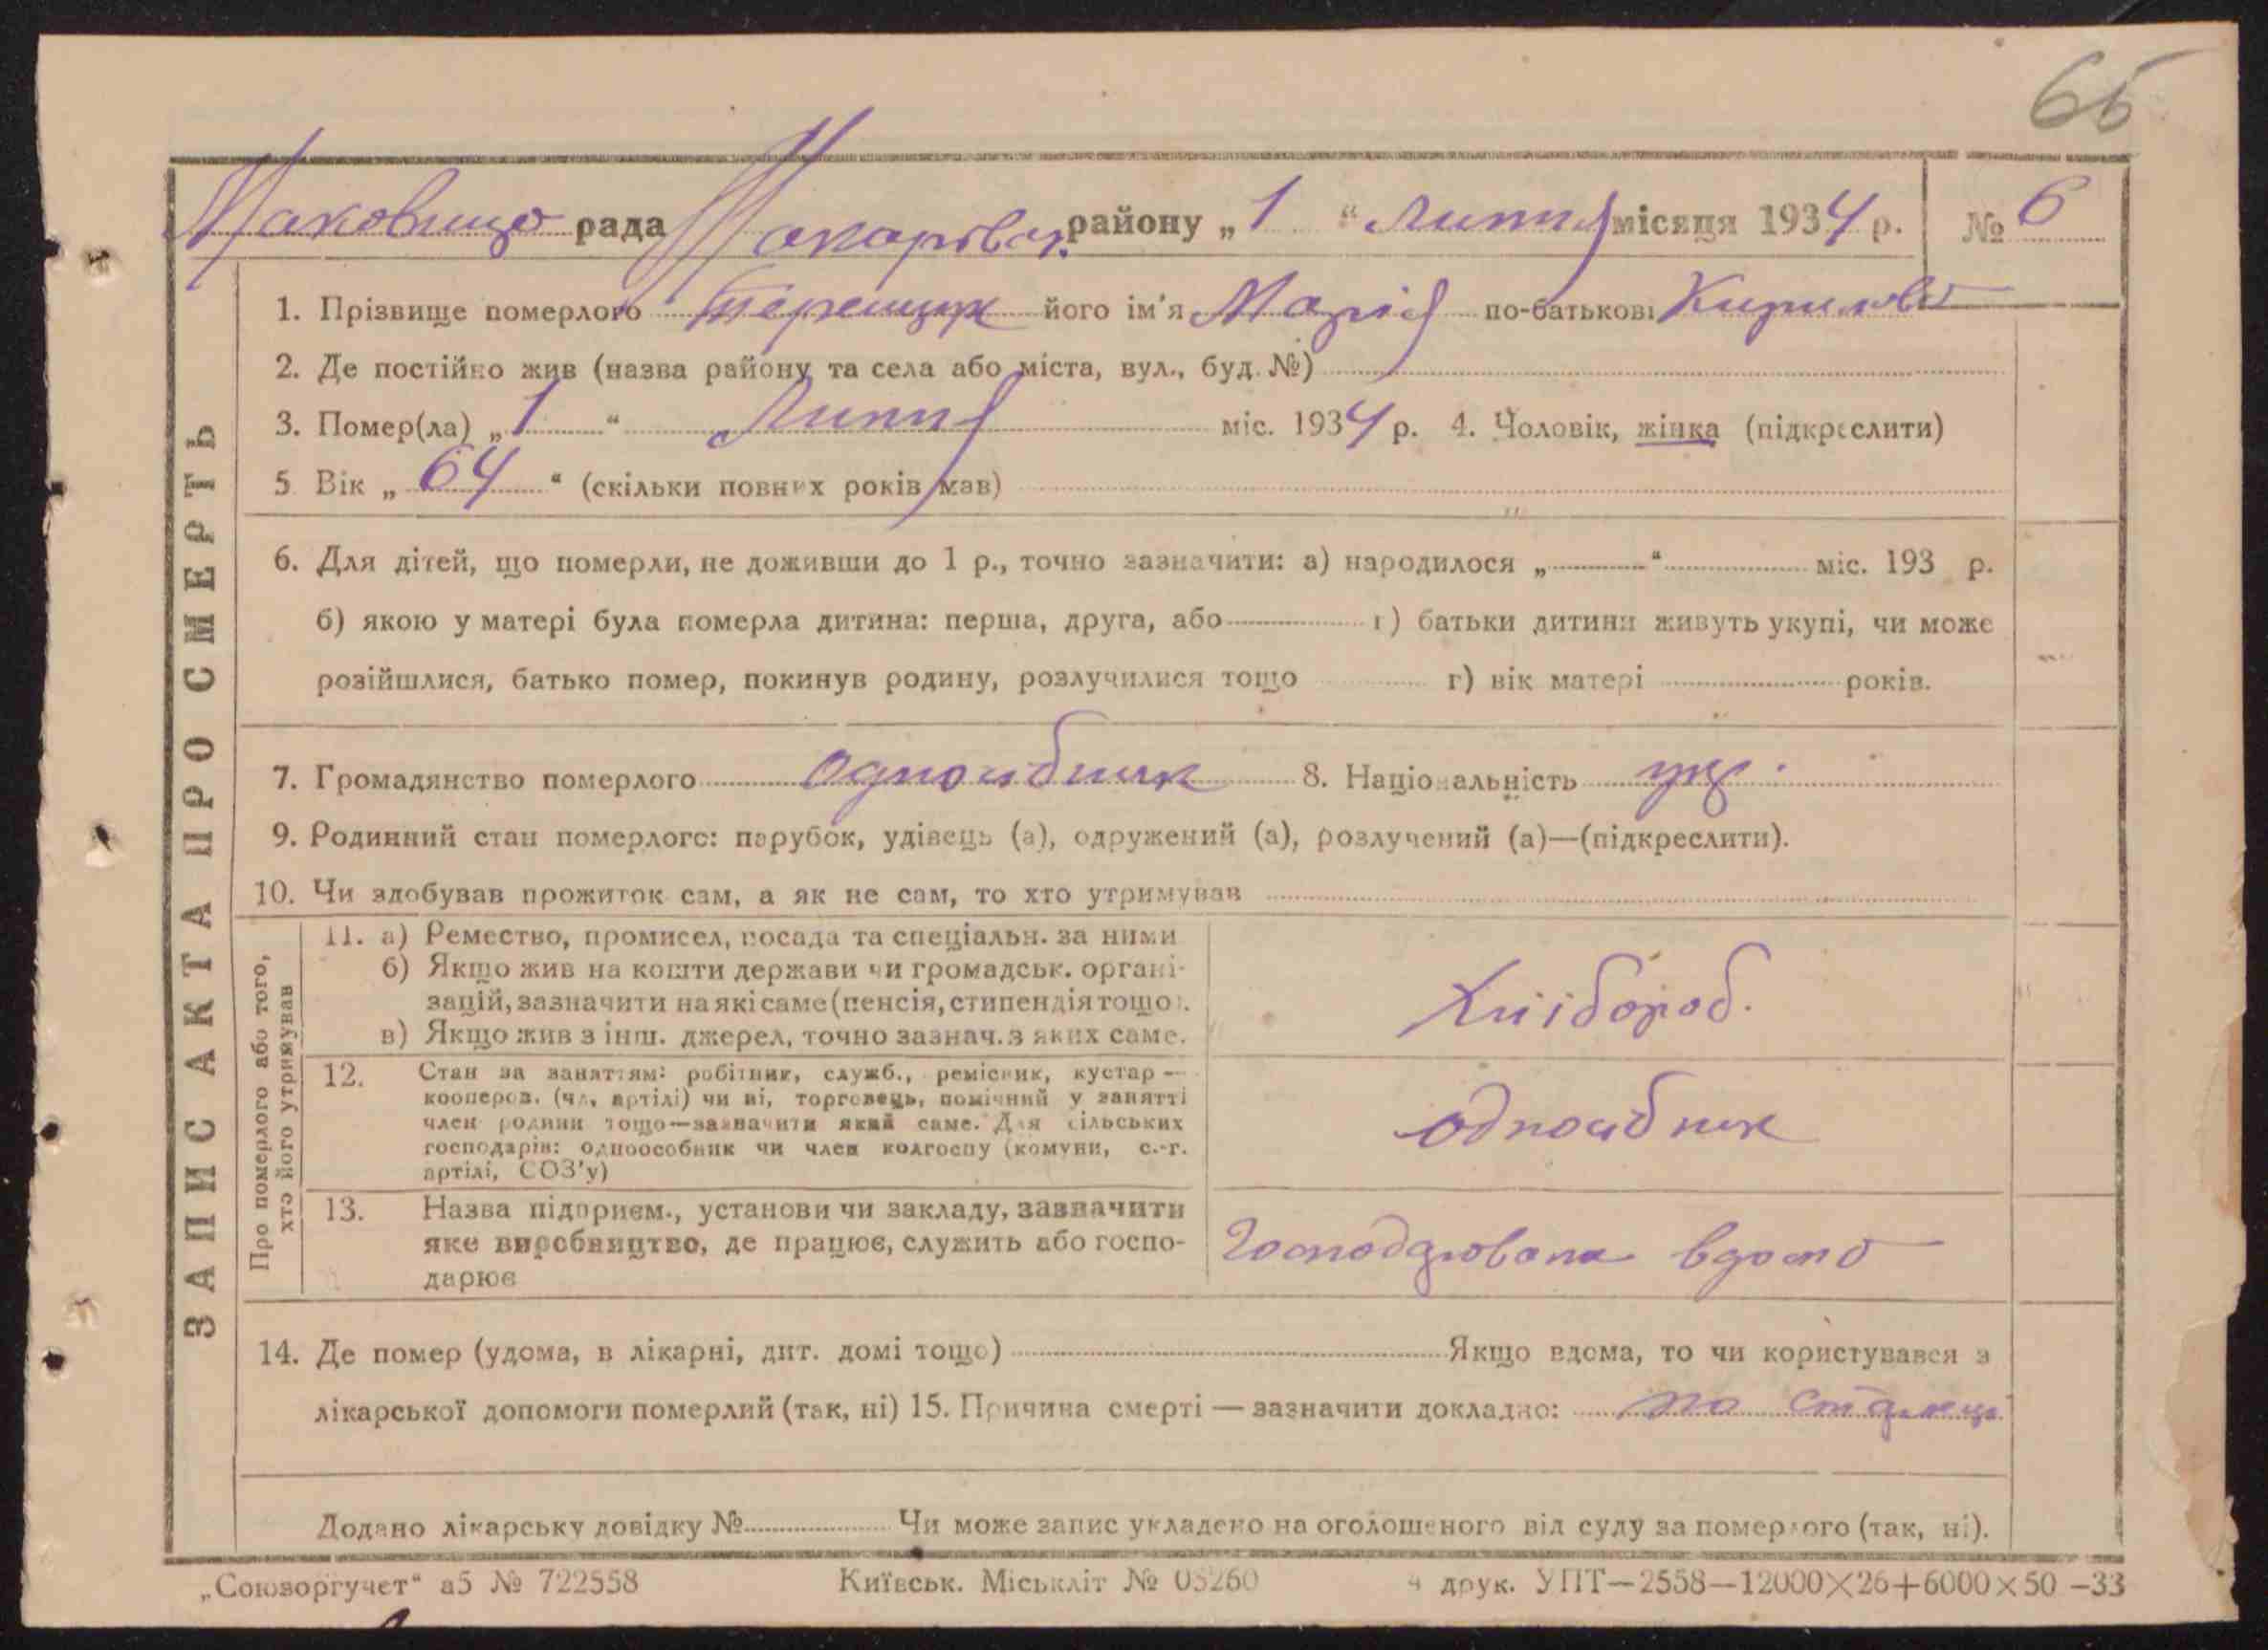 65
Маковище рада Макарівськ. району „1“ Липня місяця 1934 р. № 6
ЗАПИС АКТА ПРО СМЕРТЬ
1. Прізвище померлого Терещук його ім'я Марія по-батькові Кирилов
2. Де постійно жив (назва району та села або міста, вул., буд. №)
3. Помер(ла) „1“ Липня міс. 1934 р. 4. Чоловік, жінка (підкреслити)
5 Вік „64“ (скільки повних років мав)
6. Для дітей, що померли, не доживши до 1 р., точно зазначити: а) народилося „ “ міс. 193 р.
б) якою у матері була померла дитина: перша, друга, або г) батьки дитини живуть укупі, чи може
розійшлися, батько помер, покинув родину, розлучилися тощо г) вік матері років.
7. Громадянство померлого одноосібник 8. Національність укр.
9. Родинний стан померлого: парубок, удівець (а), одружений (а), розлучений (а)—(підкреслити).
10. Чи здобував прожиток сам, а як не сам, то хто утримував
Про померлого або того,
хто його утримував
11. а) Ремество, промисел, посада та спеціальн. за ними
б) Якщо жив на кошти держави чи громадськ. органі-
зацій, зазначити на які саме (пенсія, стипендія тощо).
в) Якщо жив з інш. джерел, точно зазнач. з яких саме.
Хлібороб.
12. Стан за заняттям: робітник, служб., ремісник, кустар —
кооперов. (чл. артілі) чи ні, торговець, помічний у занятті
член родини тощо—зазначити який саме. Для сільських
господарів: одноособник чи член колгоспу (комуни, с.-г.
артілі, СОЗ'у)
одноосібник
13. Назва підприєм., установи чи закладу, зазначити
яке виробництво, де працює, служить або госпо-
дарює
Господарювала вдома
14. Де помер (удома, в лікарні, дит. домі тощо) Якщо вдома, то чи користувався з
лікарської допомоги померлий (так, ні) 15. Причина смерті — зазначити докладно: по
Додано лікарську довідку № Чи може запис укладено на оголошеного від суду за померлого (так, ні).
„Союзоргучет“ а5 № 722558 Київськ. Міськліт № 05260 4 друк. УПТ—2558—12000×26+6000×50 —33